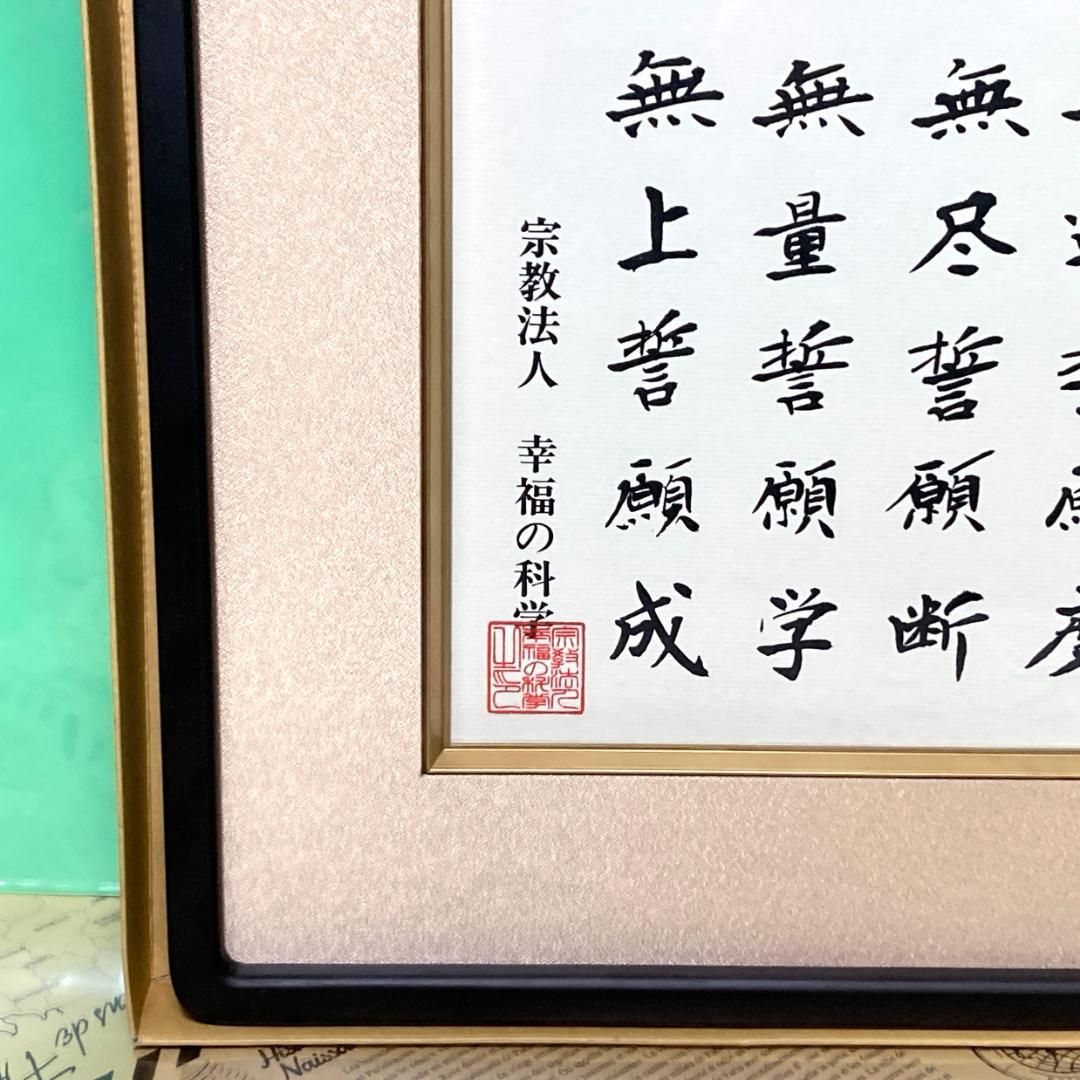 無尽誓願断
無量誓願学
無上誓願成
宗教法人 幸福の科学
宗教法人
幸福の科学
之印